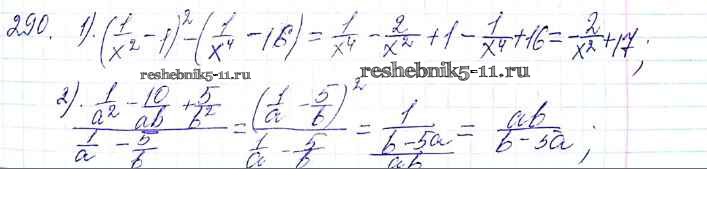 290. 1). (1/x² - 1)² - (1/x⁴ - 16) = 1/x⁴ - 2/x² + 1 - 1/x⁴ + 16 = -2/x² + 17;
reshebnik5-11.ru reshebnik5-11.ru
2). (1/a² - 10/ab + 5/b²)/(1/a - 5/b) = (1/a - 5/b)²/(1/a - 5/b) = 1/((b - 5a)/ab) = ab/(b - 5a);